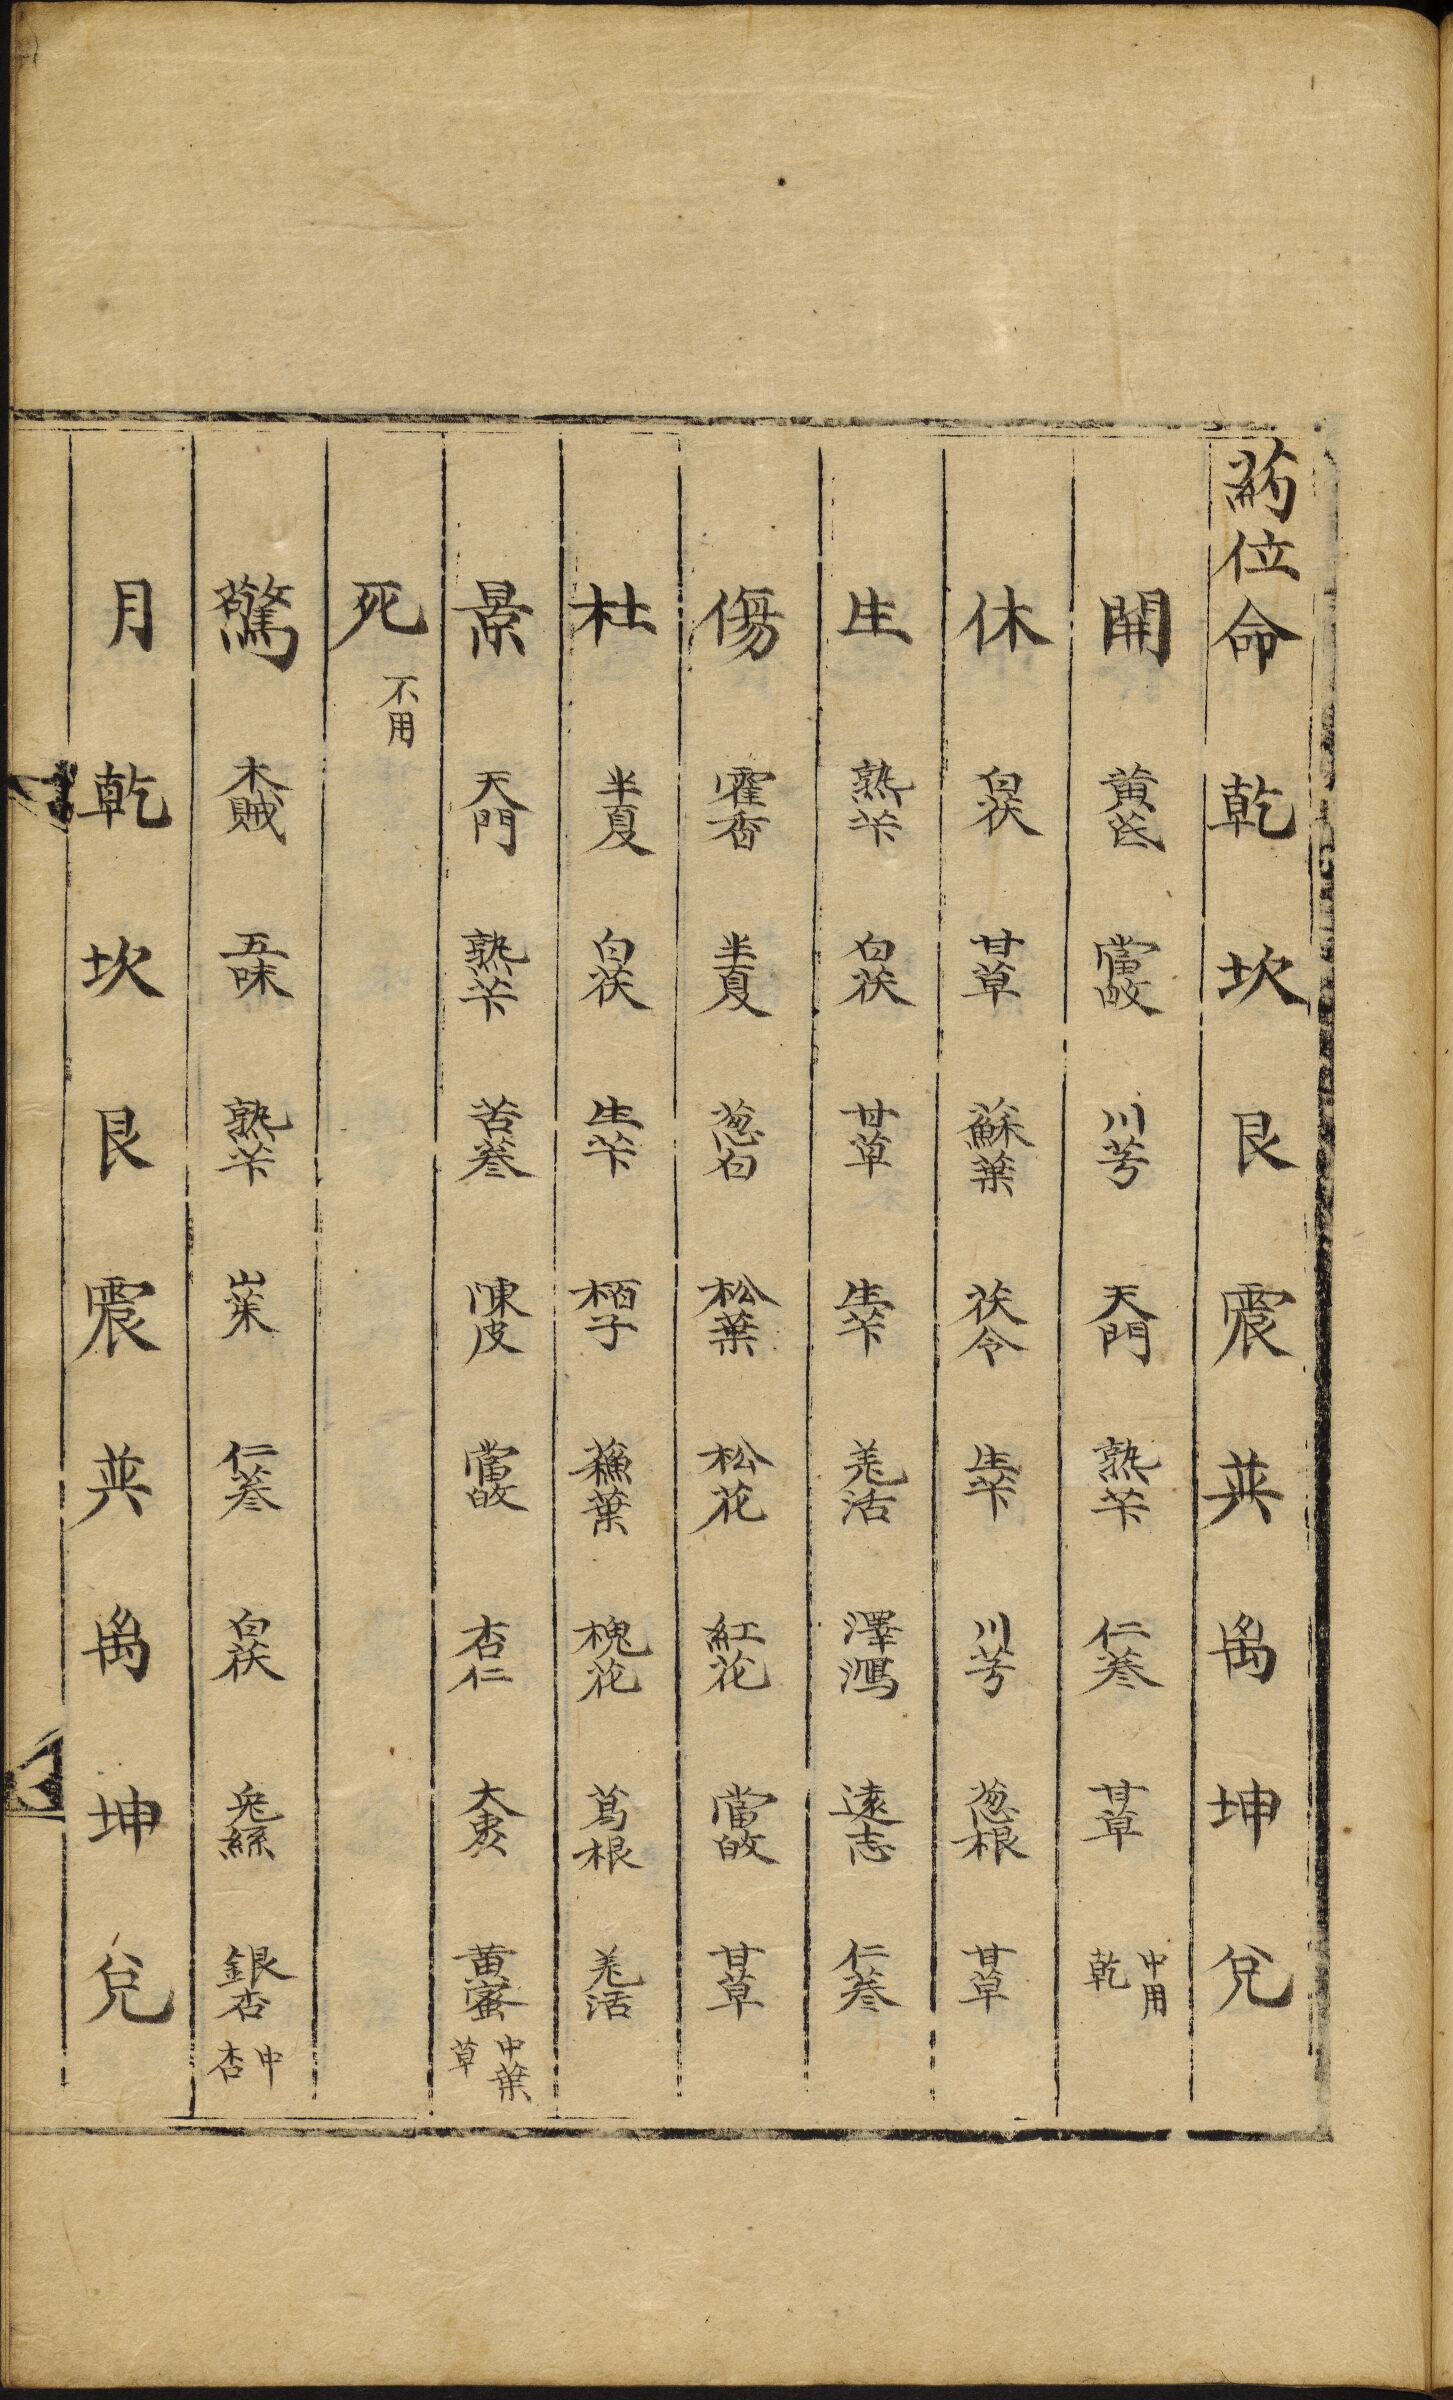 葯位命 乾 坎 艮 震 巽 禼 坤 兌
開 黄芪 當皈 川芎 天門 熟苄 仁參 甘草 中用乾
休 白茯 甘草 蘇葉 茯令 生苄 川芎 葱根 甘草
生 熟苄 白茯 甘草 生苄 羌活 澤瀉 遠志 仁參
傷 霍香 半夏 葱白 松葉 松花 紅花 當皈 甘草
杜 半夏 白茯 生苄 栢子 蘓葉 槐花 葛根 羌活
景 天門 熟苄 苦參 陳皮 當皈 杏仁 大棗 黄蜜 中葉草
死 不用
驚 木賊 五味 熟苄 山茱 仁參 白茯 兔絲 銀杏 中杏
月 乾 坎 艮 震 巽 禼 坤 兌